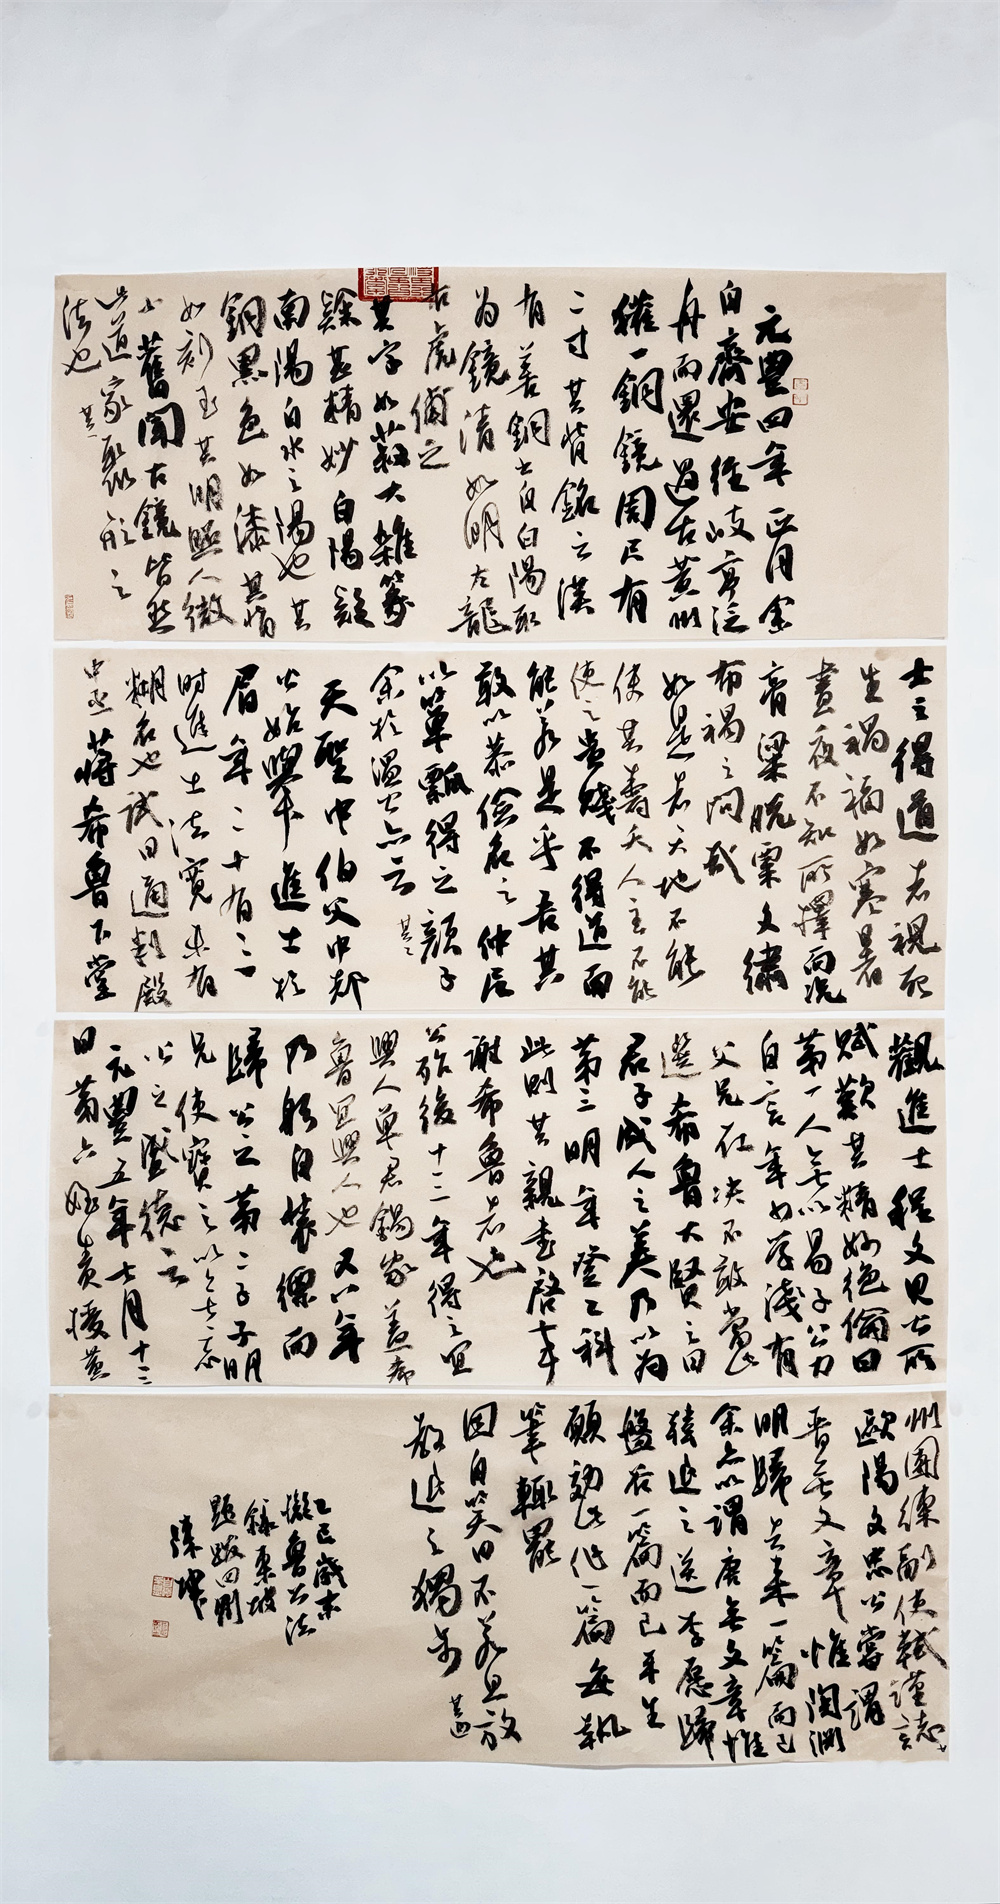 元豐四年正月余
自齊安往岐亭泛
舟而還過古黃州
獲一銅鏡周尺有
二寸其背銘云漢
有善銅出自白陽取
為鏡清如明左龍
右虎備之
其字如菽大雜篆
隸甚精妙白陽疑
南陽白水之陽也其
銅黑色如漆其背
如刻玉其明照人微
小舊聞古鏡皆然
此道家聚形之
法也 其一
士之得道者視死
生禍福如寒暑
晝夜不知所擇而況
膏粱脫粟文繡
布褐之間哉
如是者天地不能
使其壽夭人主不能
使之貴賤不得道而
能若是乎吾其
敢以恭儉名之仲尼
以簞瓢得之顏子
余於溫公亦云 其二
天聖中伯父中都
公始舉進士於
眉年二十有三
時進士法寬未有
糊名也試日通判殿
中丞蔣希魯下堂
觀進士程文見公所
賦歎其精妙絕倫曰
第一人無以易子公力
自言年少學淺有
父兄在決不敢當此
選希魯大賢之曰
君子成人之美乃以為
第三明年登乙科
此則其親書啓事
謝希魯者也
公殁後十二年得之宜
興人單君錫家蓋希
魯宜興人也又六年
乃躬自裝縹而
歸公之第二子子明
兄使寶之以無忘
公之盛德云
元豐五年七月十三
日第六姪責授黃
州團練副使軾謹誌
歐陽文忠公嘗謂
晉無文章惟陶淵
明歸去來一篇而已
余亦以謂唐無文章惟
韓退之送李愿歸
盤谷一篇而已平生
願効此作一篇每執
筆輒罷
因自笑曰不若且放
教退之獨步 其四
乙巳歲末
擬魯公法
錄東坡
題跋四則